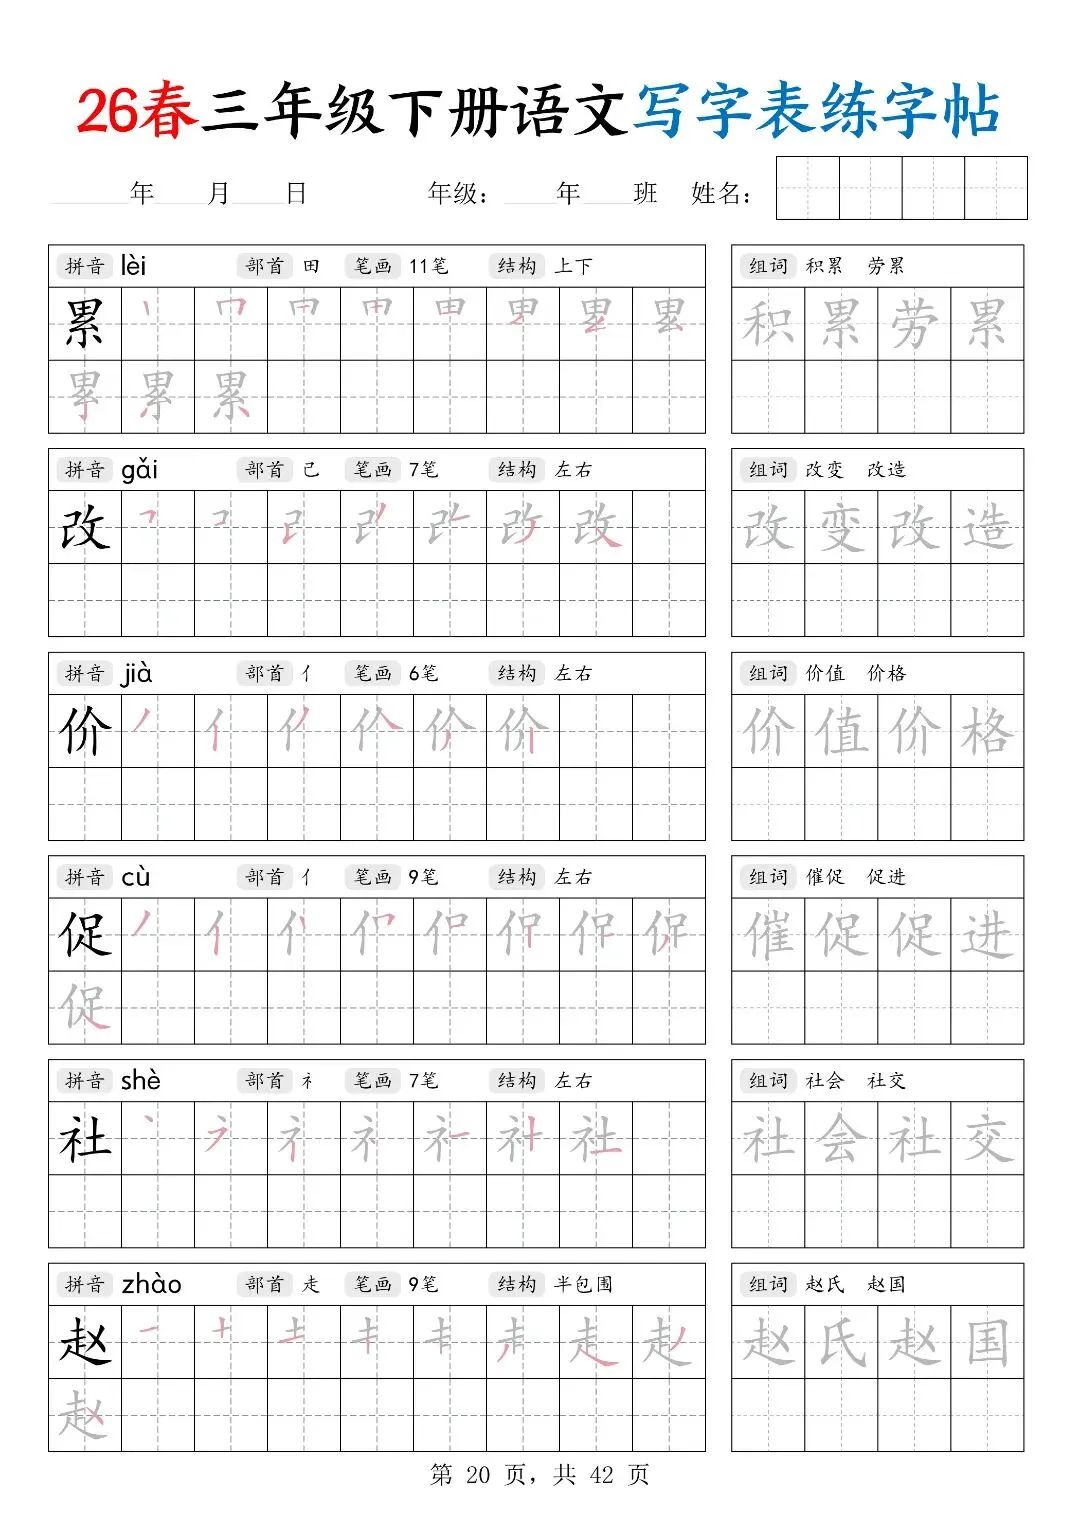 26春三年级下册语文写字表练字帖
年 月 日 年级： 年 班 姓名：
拼音 lèi 部首 田 笔画 11笔 结构 上下 组词 积累 劳累
累 积累劳累
累累累
拼音 gǎi 部首 己 笔画 7笔 结构 左右 组词 改变 改造
改 改 改变改造
拼音 jià 部首 亻 笔画 6笔 结构 左右 组词 价值 价格
价 价 价值价格
拼音 cù 部首 亻 笔画 9笔 结构 左右 组词 催促 促进
促 催促促进
促
拼音 shè 部首 礻 笔画 7笔 结构 左右 组词 社会 社交
社 社 社会社交
拼音 zhào 部首 走 笔画 9笔 结构 半包围 组词 赵氏 赵国
赵 赵氏赵国
赵
第 20 页，共 42 页